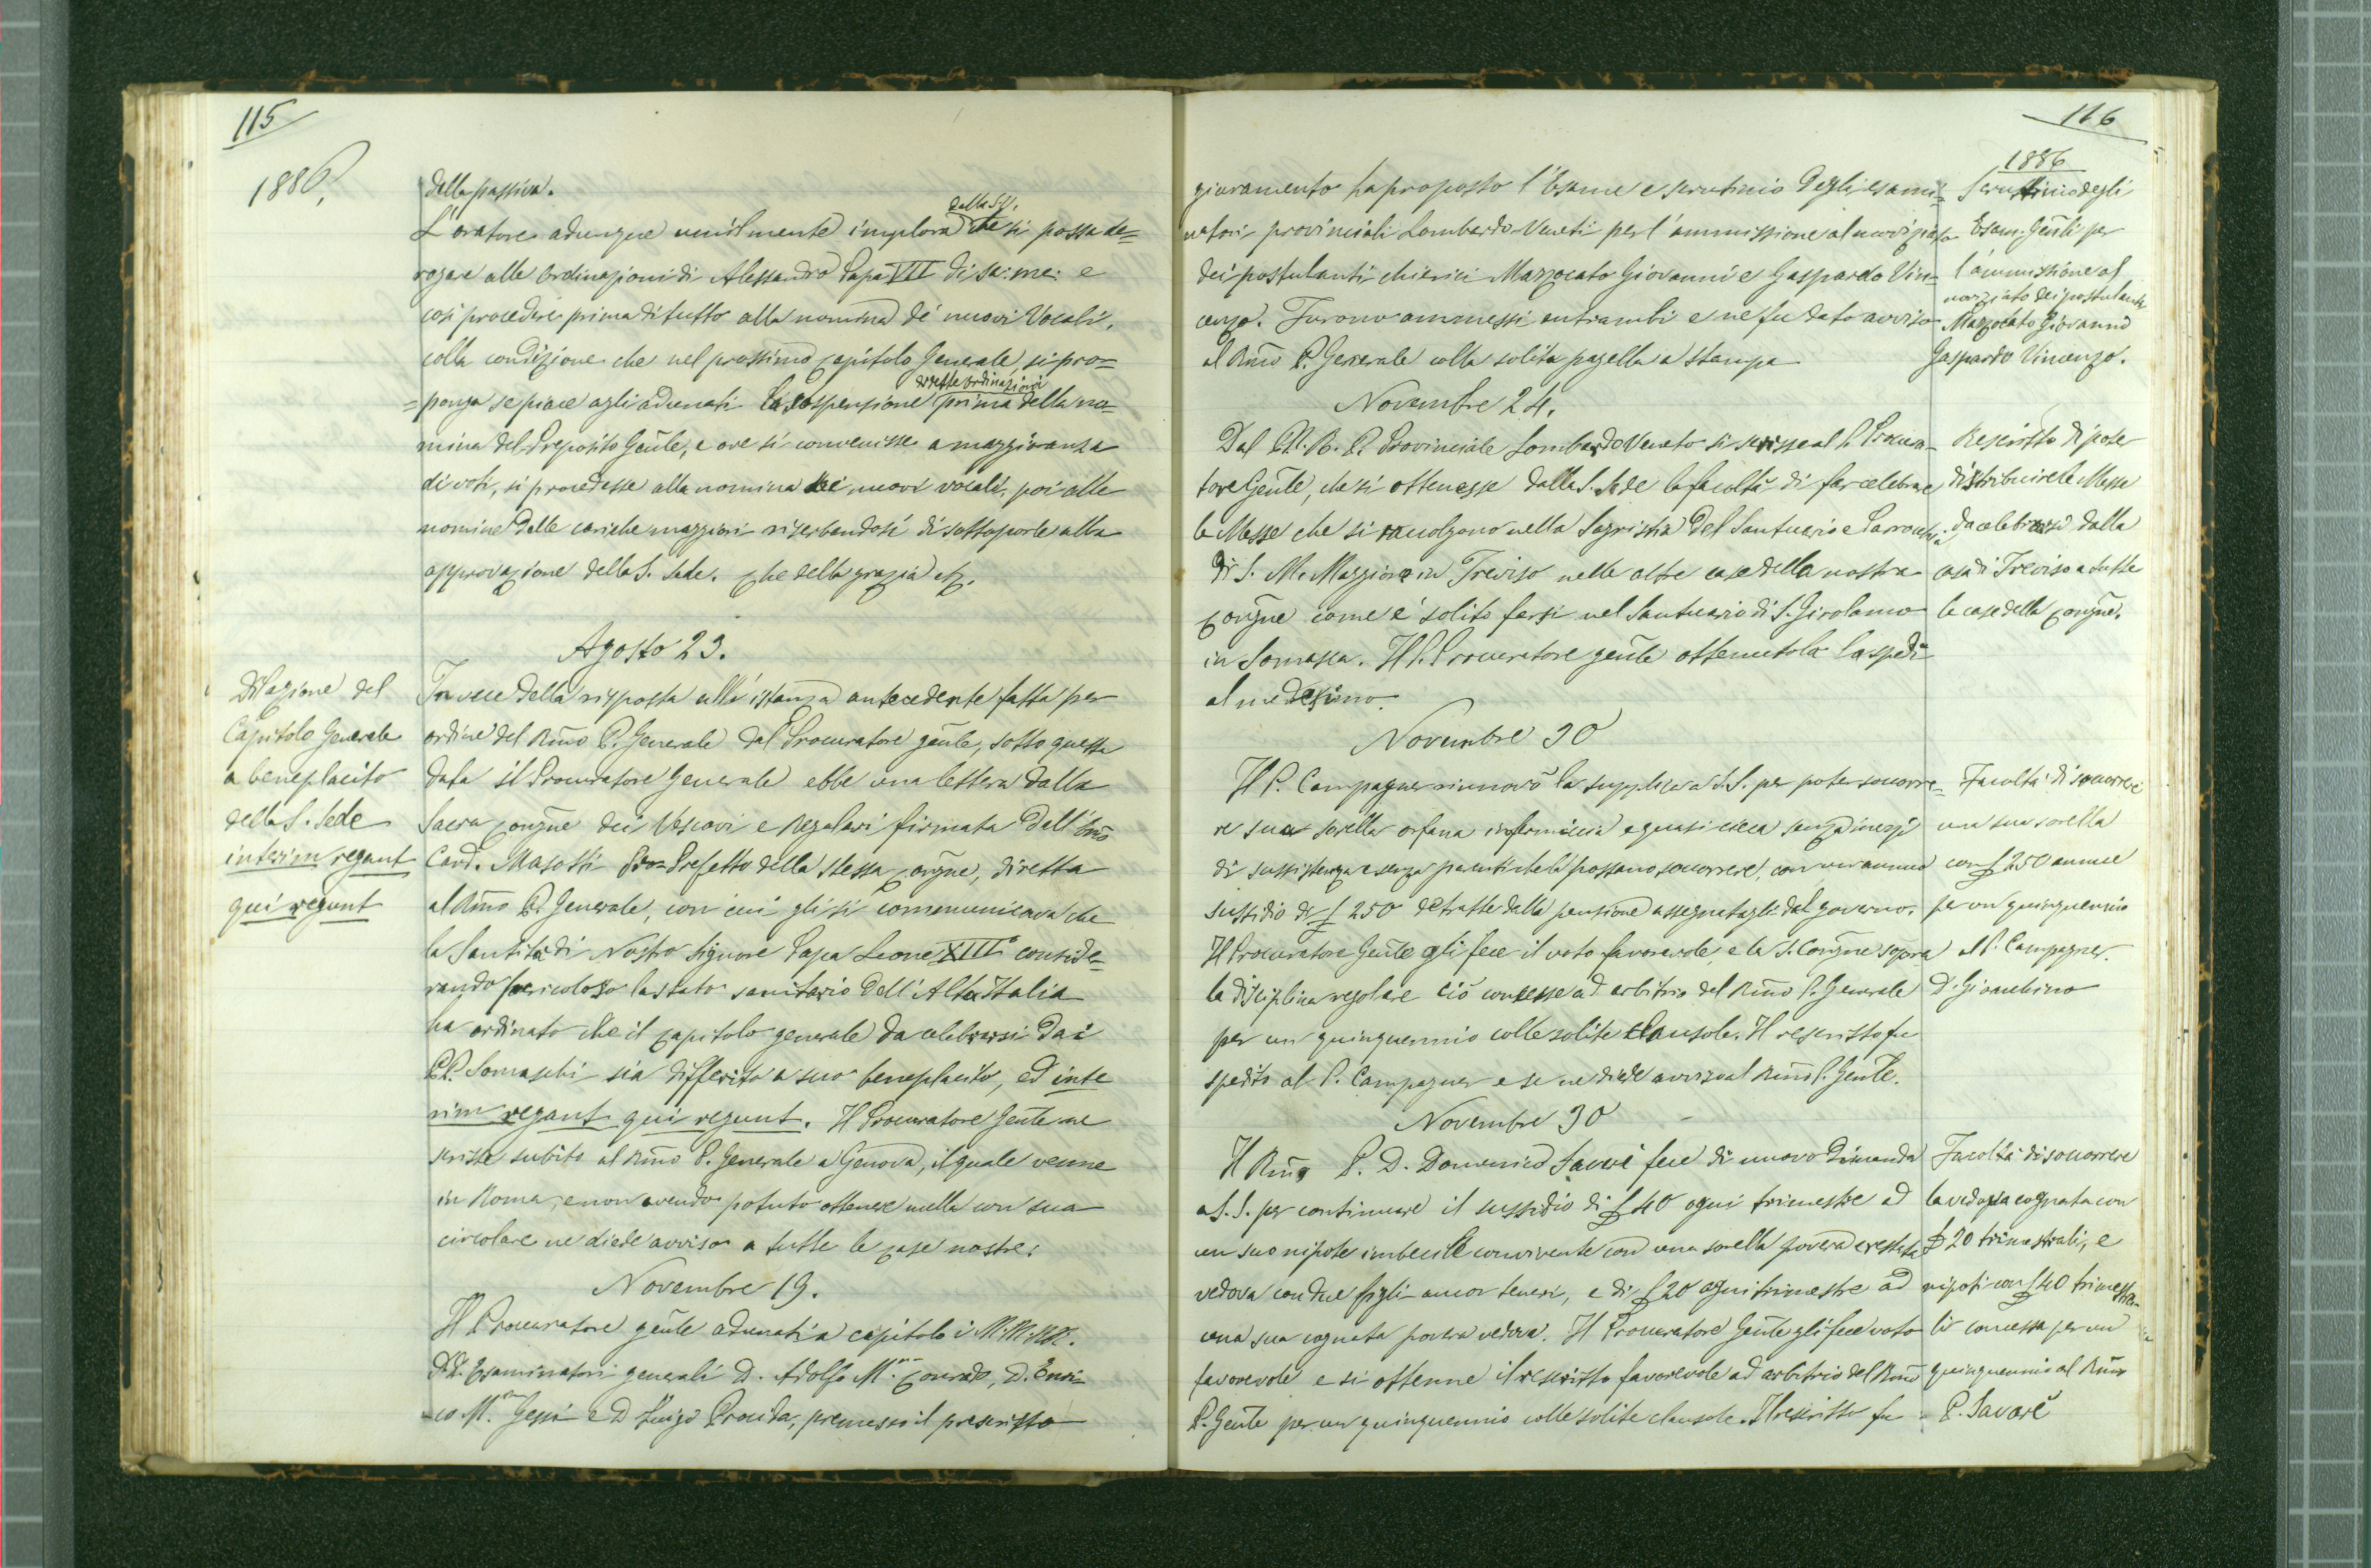 115
1886.
della passiva.
dalla S. V.
L'oratore adunque umilmente implora che si possa de=
rogare alle Ordinazioni di Alessandro Papa VII di sa: me: e
così procedere prima di tutto alla nomina de' nuovi Vocali,
colla condizione che nel prossimo Capitolo Generale, si pro=
dette ordinazioni
=ponga se piace agli adunati la sospensione prima della no=
mina del Preposito Gñle, e ove si convenisse a maggioranza
di voti, si procedesse alla nomina dei nuovi vocali, poi alle
nomine delle cariche maggiori riserbandosi di sottoporle alla
approvazione della S. Sede. Che della grazia etc.
Agosto 23.
Dilazione del
Capitolo Generale
a beneplacito
della S. Sede
interim regant
qui regunt
In vece della risposta all'istanza antecedente fatta per
ordine del Rmo P. Generale dal Procuratore gñle, sotto questa
data il Procuratore Generale ebbe una lettera dalla
Sacra Congne dei Vescovi e Regolari firmata dall'Emo
Card. Masotti Pro-Prefetto della stessa Congne, diretta
al Rmo P. Generale, con cui gli si commenunicava che
la Santità di Nostro Signore Papa Leone XIII conside=
rando pericoloso lo stato sanitario dell'Alta Italia
ha ordinato che il Capitolo generale da celebrarsi dai
PP. Somaschi sia differito a suo beneplacito, ed inte
rim regant qui regunt. Il Procuratore Gente ne
scrisse subito al Rmo P. Generale a Genova, il quale venne
in Roma, e non avendo potuto ottenere nulla con sua
circolare ne diede avviso a tutte le case nostre.
Novembre 19.
Il Procuratore gñle adunati a capitolo i M. M. RR.
DD. Esaminatori generali D. Adolfo M. Conrado, D. Enri=
=co M. Gessi e D Luigi Procida, premesso il prescritto
116
1886
giuramento ha proposto l'Esame e scrutinio degli esami=
natori provinciali Lombardo-Veneti per l'ammissione al noviziato
dei postulanti chierici Mazzocato Giovanni e Gaspardo Vin=
cenzo. Furono ammessi entrambi e ne fu dato avviso
al Rmo P. Generale colla solita pagella a stampa
Scruttinio degli
Esam. Gñli per
l'ammissione al
noviziato dei postulanti
Mazzocato Giovanni
Gaspardo Vincenzo.
Novembre 24.
Dal M. R. P. Provinciale Lombardo Veneto si scrisse al P. Procura=
tore Gente, che si ottenesse dalla S. Sede la facoltà di far celebrare
le Messe che si raccolgono nella Sagristia del Santuario e Parrocchia
di S. M. Maggiore in Treviso nelle altre case della nostra
Congne come è solito farsi nel Santuario di S. Girolamo
in Somasca. Il P. Procuratore gente ottenutola la spedì
al medesimo.
Rescritto di poter
distribuire le Messe
da celebrarsi dalla
casa di Treviso a tutte
le case della Congne.
Novembre 30
Il P. Campagner rinnovò la supplica a S.S. per poter soccorre=
re sua sorella orfana infermiccia e quasi cieca senza mezzi
di sussistenza e senza parenti che la possano soccorrere, con un annuo
sussidio di £ 250 detratte dalla pensione assegnatagli dal governo.
Il Procuratore Gente gli fece il voto favorevole, e la S. Congne sopra
la disciplina regolare ciò concesse ad arbitrio del Rmo P. Generale
per un quinquennio colle solite clausole. Il rescritto fu
spedito al P. Campagner e se ne diede avviso al Rmo P. Gente.
Facoltà di soccorrere
una sua sorella
con £ 250 annue
per un quinquennio
al P. Campagner
D. Gioachino
Novembre 30
Il Rmo P. D. Domenico Savarè fece di nuovo dimanda
a S.S. per continuare il sussidio di £ 40 ogni trimestre ad
un suo nipote imbecille convivente con una sorella povera e restata
vedova con due figli ancor teneri, e di £ 20 ogni trimestre ad
una sua cognata povera vedova. Il Procuratore Gente gli fece voto
favorevole e si ottenne il rescritto favorevole ad arbitrio del Rmo
P. Gente per un quinquennio colle solite clausole. Il rescritto fu
Facoltà di soccorrere
la vedova cognata con
£ 20 trimestrali, e
nipoti con £ 40 trimestra=
li concessa per un
quinquennio al Rmo
P. Savarè